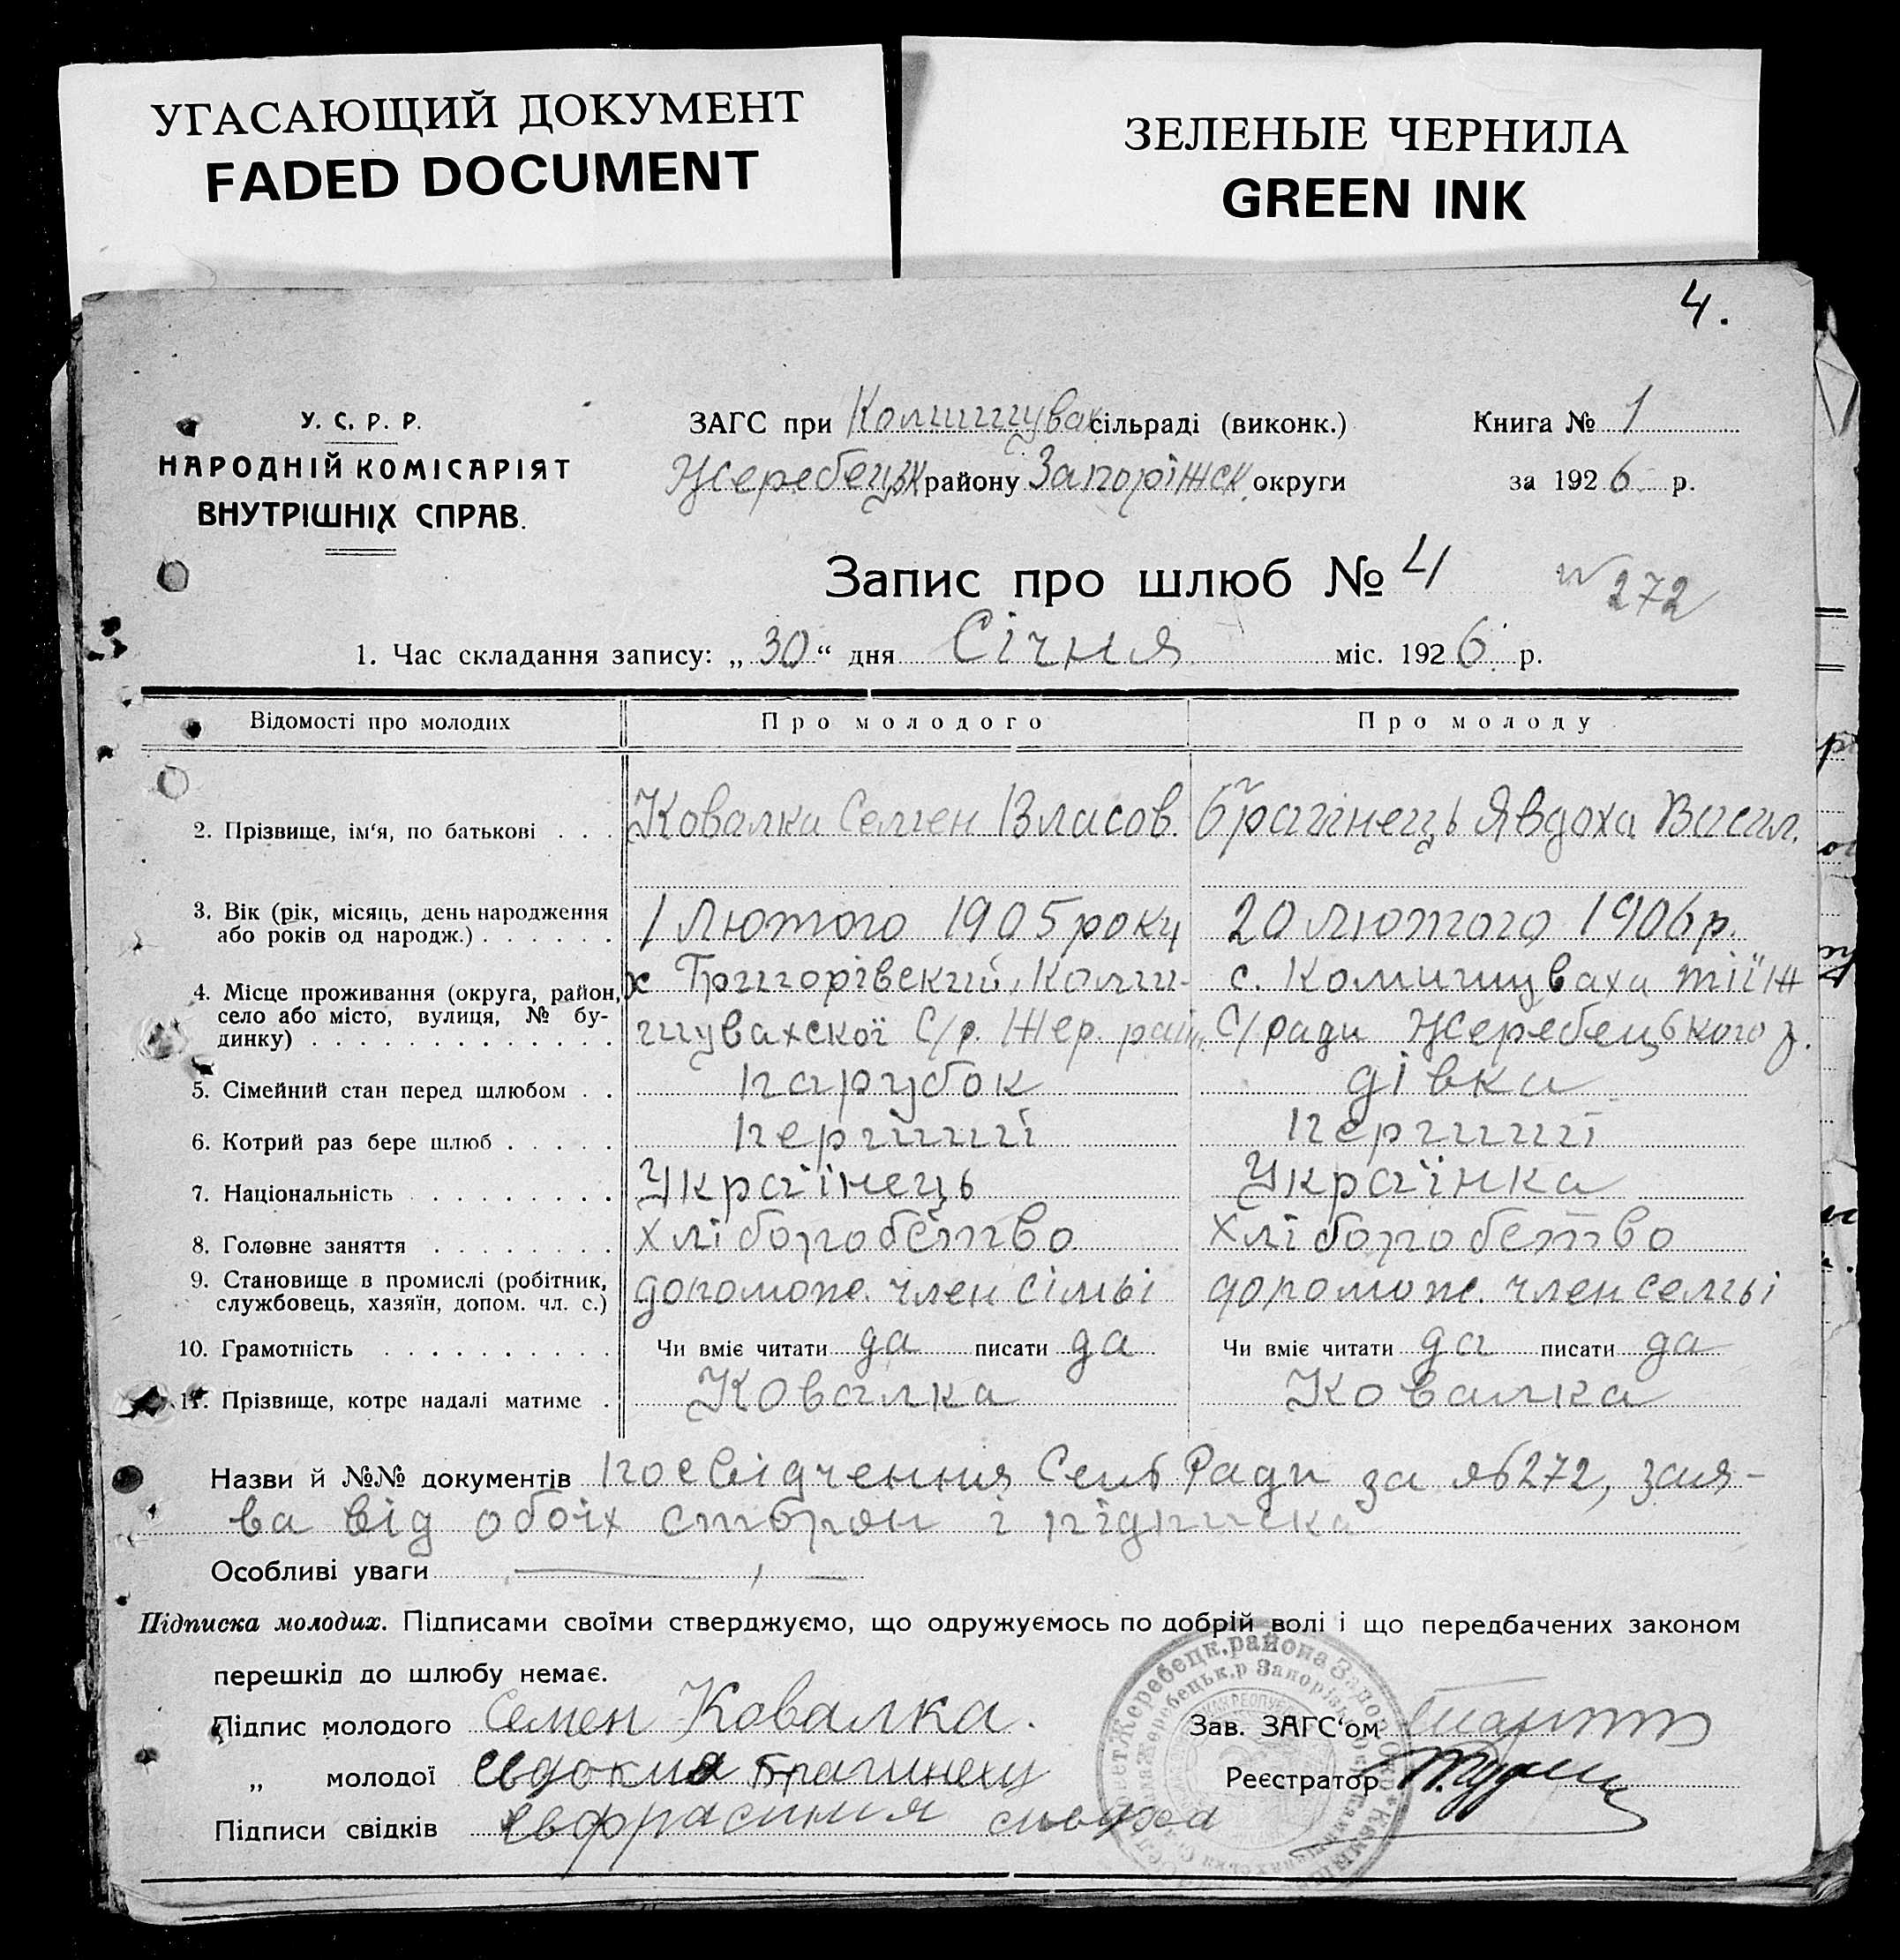 УГАСАЮЩИЙ ДОКУМЕНТ
FADED DOCUMENT
ЗЕЛЕНЫЕ ЧЕРНИЛА
GREEN INK
4.
У. С. Р. Р.
НАРОДНІЙ КОМІСАРІЯТ
ВНУТРІШНІХ СПРАВ.
ЗАГС при Комишувах сільраді (виконк.)
Жеребецьк району Запоріжск. округи
Книга № 1
за 1926 р.
Запис про шлюб № 4
№ 272
1. Час складання запису: „30“ дня Січня міс. 1926 р.
Відомості про молодих Про молодого Про молоду
2. Прізвище, ім‘я, по батькові . . . Ковалка Семен Власов. Брагінець Явдоха Васил.
3. Вік (рік, місяць, день народження
або років од народж.) . . . . . . 1 Лютого 1905 року 20 Лютого 1906 р.
4. Місце проживання (округа, район,
село або місто, вулиця, № бу-
динку) . . . . . . . . . . . . .
х Григорівский, Коми-
шувахскої С/р. Жер. райн.
с. Комишуваха тіїж
С/ради Жеребецького р.
5. Сімейний стан перед шлюбом . . парубок дівка
6. Котрий раз бере шлюб . . . . . перший перший
7. Національність . . . . . . . . Українець Українка
8. Головне заняття . . . . . . . . хліборобство хліборобство
9. Становище в промислі (робітник,
службовець, хазяїн, допом. чл. с.) допомож. член сімьі допомож. член семьі
10. Грамотність . . . . . . . . . . Чи вміє читати да писати да Чи вміє читати да писати да
11. Прізвище, котре надалі матиме . Ковалка Ковалка
Назви й №№ документів посвідчення Сель Ради за №272, зая-
ва від обоіх сторон і підписка
Особливі уваги
Підписка молодих. Підписами своїми стверджуємо, що одружуємось по добрій волі і що передбачених законом
перешкід до шлюбу немає.
Підпис молодого Семен Ковалка.
„ молодої Евдокия Брагинец
Підписи свідків Евфрасиния
Зав. ЗАГС‘ом
Реєстратор